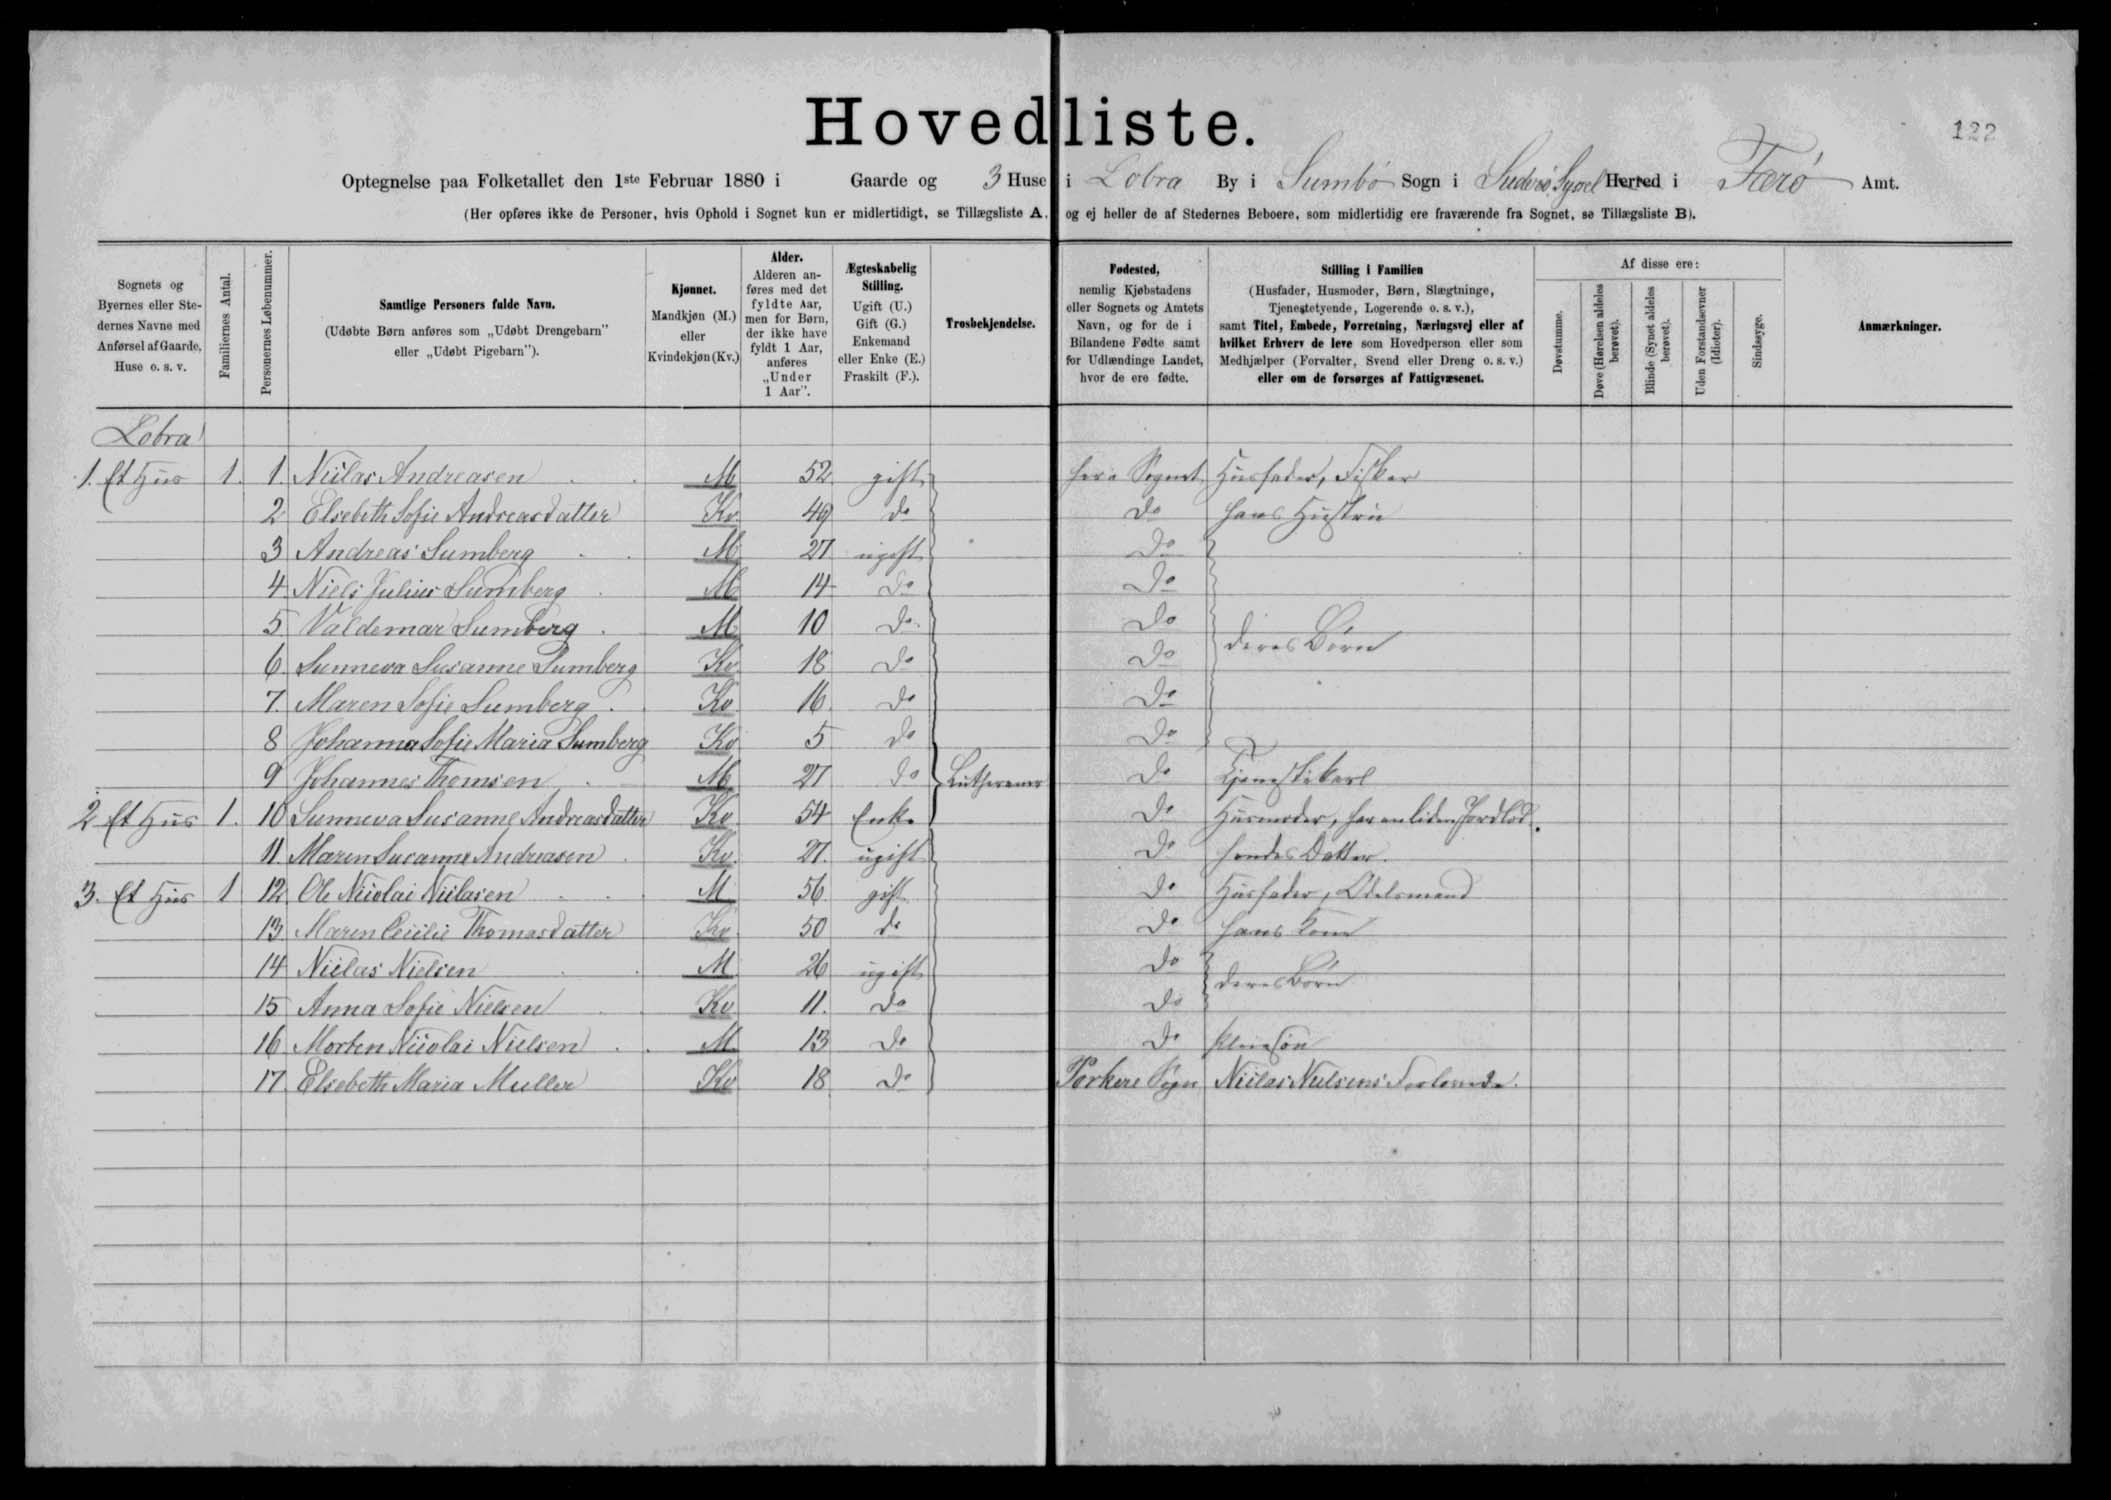 Hovedliste.
122
Optegnelse paa Folketallet den 1ste Februar 1880 i Gaarde og 3 Huse i Lobra By i Sumbø Sogn i Suderø Syssel Herred i Færø Amt.
(Her opføres ikke de Personer, hvis Ophold i Sognet kun er midlertidigt, se Tillægsliste A, og ej heller de af Stedernes Beboere, som midlertidig ere fraværende fra Sognet, se Tillægsliste B).
Sognets og Byernes eller Stedernes Navne med Anførsel af Gaarde, Huse o. s. v.
Familiernes Antal.
Personernes Løbenummer.
Samtlige Personers fulde Navn.
(Udøbte Børn anføres som „Udøbt Drengebarn" eller „Udøbt Pigebarn").
Kjønnet.
Mandkjøn (M.) eller Kvindekjøn (Kv.)
Alder.
Alderen anføres med det fyldte Aar, men for Børn, der ikke have fyldt 1 Aar, anføres „Under 1 Aar".
Ægteskabelig Stilling.
Ugift (U.) Gift (G.) Enkemand eller Enke (E.) Fraskilt (F.).
Trosbekjendelse.
Fødested,
nemlig Kjøbstadens eller Sognets og Amtets Navn, og for de i Bilandene Fødte samt for Udlændinge Landet, hvor de ere fødte.
Stilling i Familien
(Husfader, Husmoder, Børn, Slægtninge, Tjenestetyende, Logerende o. s. v.),
samt Titel, Embede, Forretning, Næringsvej eller af hvilket Erhverv de leve som Hovedperson eller som Medhjælper (Forvalter, Svend eller Dreng o. s. v.) eller om de forsørges af Fattigvæsenet.
Af disse ere:
Døvstumme.
Døve (Hørelsen aldeles berøvet).
Blinde (Synet aldeles berøvet).
Uden Forstandsevner (Idioter).
Sindssyge.
Anmærkninger.
Lobra
1. Et Hus 1. 1. Niclas Andreasen M 52 gift her i Sognet Husfader, Fisker
2 Elsebeth Sofie Andreasdatter Kv. 49 do do hans Hustru
3 Andreas Sumberg M 27 ugift do
4 Niels Julius Sumberg M 14 do do
5. Valdemar Sumberg M 10 do do deres Børn
6. Sunneva Susanne Sumberg Kv. 18 do do
7. Maren Sofie Sumberg Kv. 16. do do
8 Johanna Sofie Maria Sumberg Kv 5 do do
9 Johannes Thomsen M 27 do Lutheraner do Tjenestekarl
2 Et Hus 1. 10 Sunneva Susanne Andreasdatter Kv. 54 Enke do Husmoder, har en liden Jordlod.
11. Maren Susanne Andreasen Kv. 27. ugift do hendes Datter.
3. Et Hus 1 12. Ole Nicolai Niclasen M 56 gift do Husfader, Odelsmand
13. Maren Cecilie Thomasdatter Kv. 50 do do hans Kone
14 Niclas Nielsen M 26 ugift do deres Børn
15 Anna Sofie Nielsen Kv. 11. do do
16 Morten Nicolai Nielsen M. 13 do do
17. Elsebeth Maria Muller Kv 18 do Porkere Sogn Niclas Nielsens Forlovede.